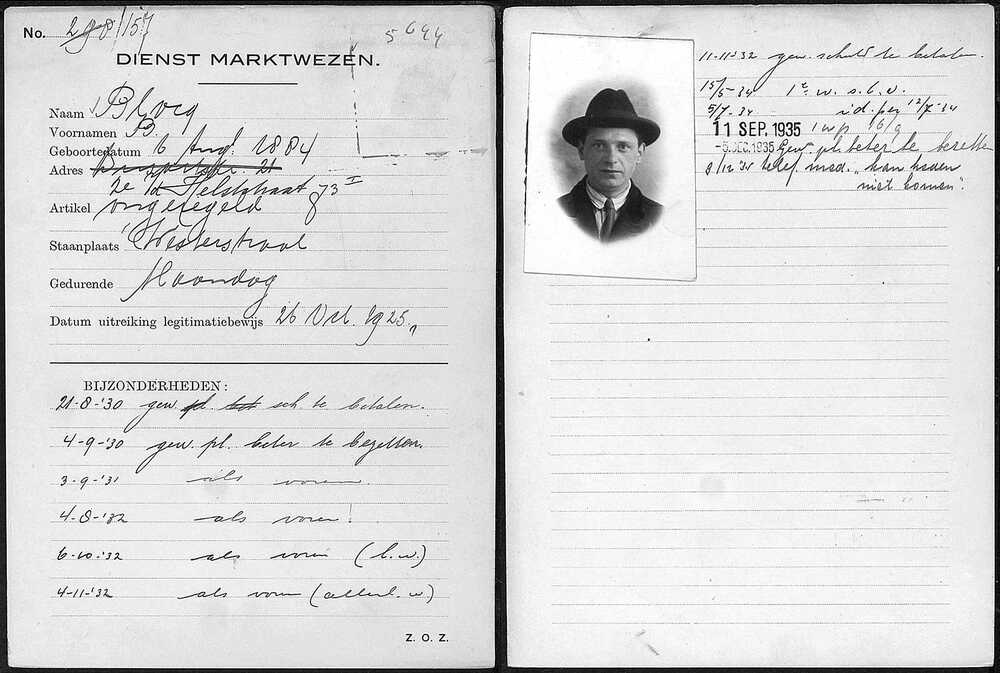 No. 298/157
5644
DIENST MARKTWEZEN.
Naam Blocq
Voornamen B.
Geboortedatum 16 Aug. 1884
Adres
2e Jd. Heldstraat 73 I
Artikel ongeregeld 8
Staanplaats Westerstraat
Gedurende Maandag
Datum uitreiking legitimatiebewijs 26 Oct. 1925
BIJZONDERHEDEN:
21-8-'30 gew. pl. tot sch. te betalen.
4-9-'30 gew. pl. beter te bezetten.
3-9-'31 als voren.
4-8-'32 als voren!
6-10-'32 als voren (l.w.)
4-11-'32 als voren (allerl. w)
Z. O. Z.
11-11-'32 gew. schuld te betalen.
15/5-34 1e w. s.b.v.
5/7-34 id. per 12/7-34
11 SEP. 1935 1 wp 16/9
-5 DEC. 1935 Gew. pl. beter te bezetten
9/12 '35 telef. med. "kan heden
niet komen".